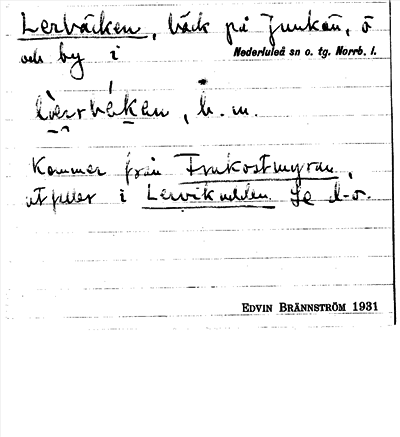 Lerbäcken, bäck på Junkön, ö
och by i Nederluleå sn o. tg. Norrb. l.
b. m.
Kommer från Frukostmyran,
utfaller i Lervikudden Se d-o.
EDVIN BRÄNNSTRÖM 1931